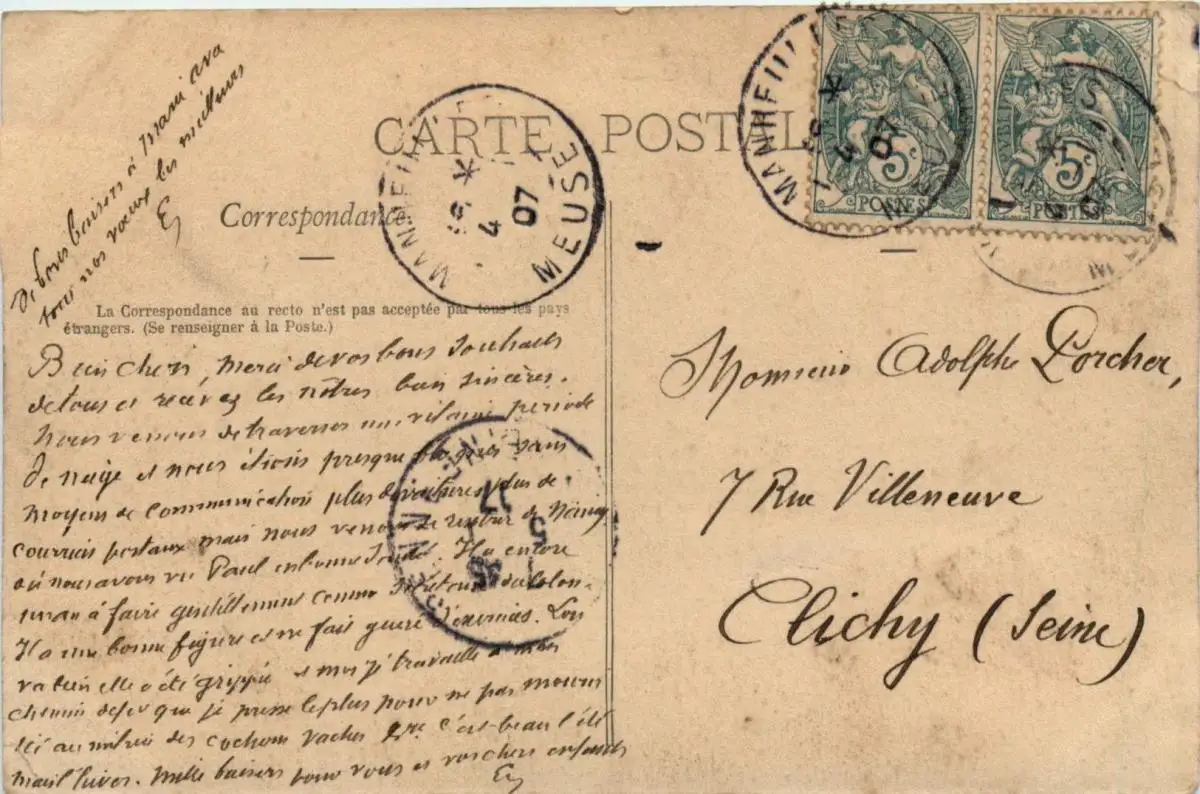 De bons baisers à Marie ava
tous nos vœux les meilleurs
CARTE POSTAL
Correspondance
La Correspondance au recto n'est pas acceptée par tous les pays
étrangers. (Se renseigner à la Poste.)
MEUSE
4
07
5c
POSTES
5c
POSTES
Bien chers, Merci de vos bons souhaits
de tous et recevez les nôtres bien sincères.
Nous venons de traverser une vilaine période
de neige et nous étions presque bloqués sans
moyens de communication plus de voitures plus de
courriers postaux mais nous venons de rentrer de Nancy
où nous avons vu Paul en bonne santé. Il a encore
à faire gentillement comme
Il a une bonne figure et ne fait guère d'exercices. Lou
va bien elle a été grippée et moi je travaille à mon
chemin de fer que je presse le plus pour ne pas mourir
ici au milieu des cochons vaches &ce c'est beau l'été
mais l'hiver. Mille baisers pour vous et vos chers enfants
Monsieur Adolphe Porcher,
7 Rue Villeneuve
Clichy (Seine)